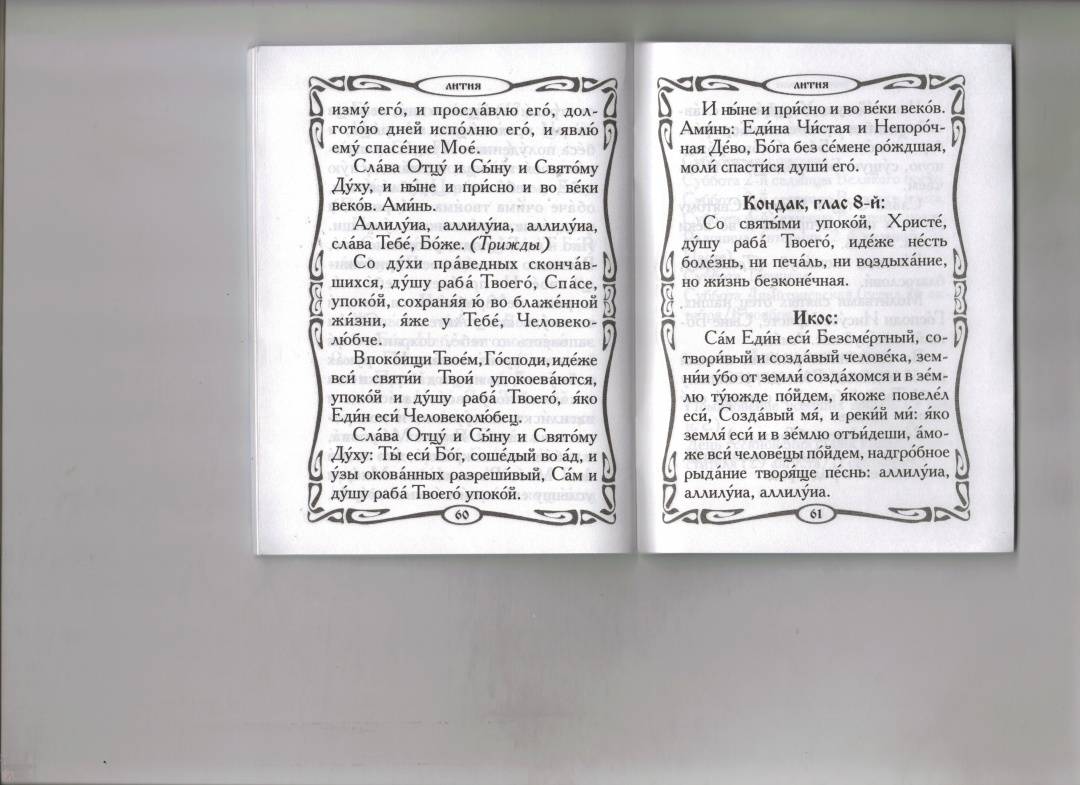 лития
изму́ его́, и просла́влю его́, дол-
гото́ю дней испо́лню его́, и явлю́
ему́ спасе́ние Мое́.
Сла́ва Отцу́ и Сы́ну и Свято́му
Ду́ху, и ны́не и при́сно и во ве́ки
веко́в. Ами́нь.
Аллилу́иа, аллилу́иа, аллилу́иа,
сла́ва Тебе́, Бо́же. (Трижды)
Со ду́хи пра́ведных сконча́в-
шихся, ду́шу раба́ Твоего́, Спа́се,
упоко́й, сохраня́я ю́ во блаже́нной
жи́зни, я́же у Тебе́, Человеко-
лю́бче.
В поко́ищи Твое́м, Го́споди, иде́же
вси́ святи́и Твои́ упокоева́ются,
упоко́й и ду́шу раба́ Твоего́, я́ко
Еди́н еси́ Человеколю́бец.
Сла́ва Отцу́ и Сы́ну и Свято́му
Ду́ху: Ты́ еси́ Бо́г, соше́дый во а́д, и
у́зы окова́нных разреши́вый, Са́м и
ду́шу раба́ Твоего́ упоко́й.
60
лития
И ны́не и при́сно и во ве́ки веко́в.
Ами́нь: Еди́на Чи́стая и Непоро́ч-
ная Де́во, Бо́га без се́мене ро́ждшая,
моли́ спасти́ся души́ его́.
Кондак, глас 8-й:
Со святы́ми упоко́й, Христе́,
ду́шу раба́ Твоего́, иде́же не́сть
боле́знь, ни печа́ль, ни воздыха́ние,
но жи́знь безконе́чная.
Икос:
Са́м Еди́н еси́ Безсме́ртный, со-
твори́вый и созда́вый челове́ка, зем-
ни́и у́бо от земли́ созда́хомся и в зе́м-
лю ту́южде по́йдем, я́коже повеле́л
еси́, Созда́вый мя́, и реки́й ми́: я́ко
земля́ еси́ и в зе́млю отъи́деши, а́мо-
же вси́ челове́цы по́йдем, надгро́бное
рыда́ние творя́ще пе́снь: аллилу́иа,
аллилу́иа, аллилу́иа.
61